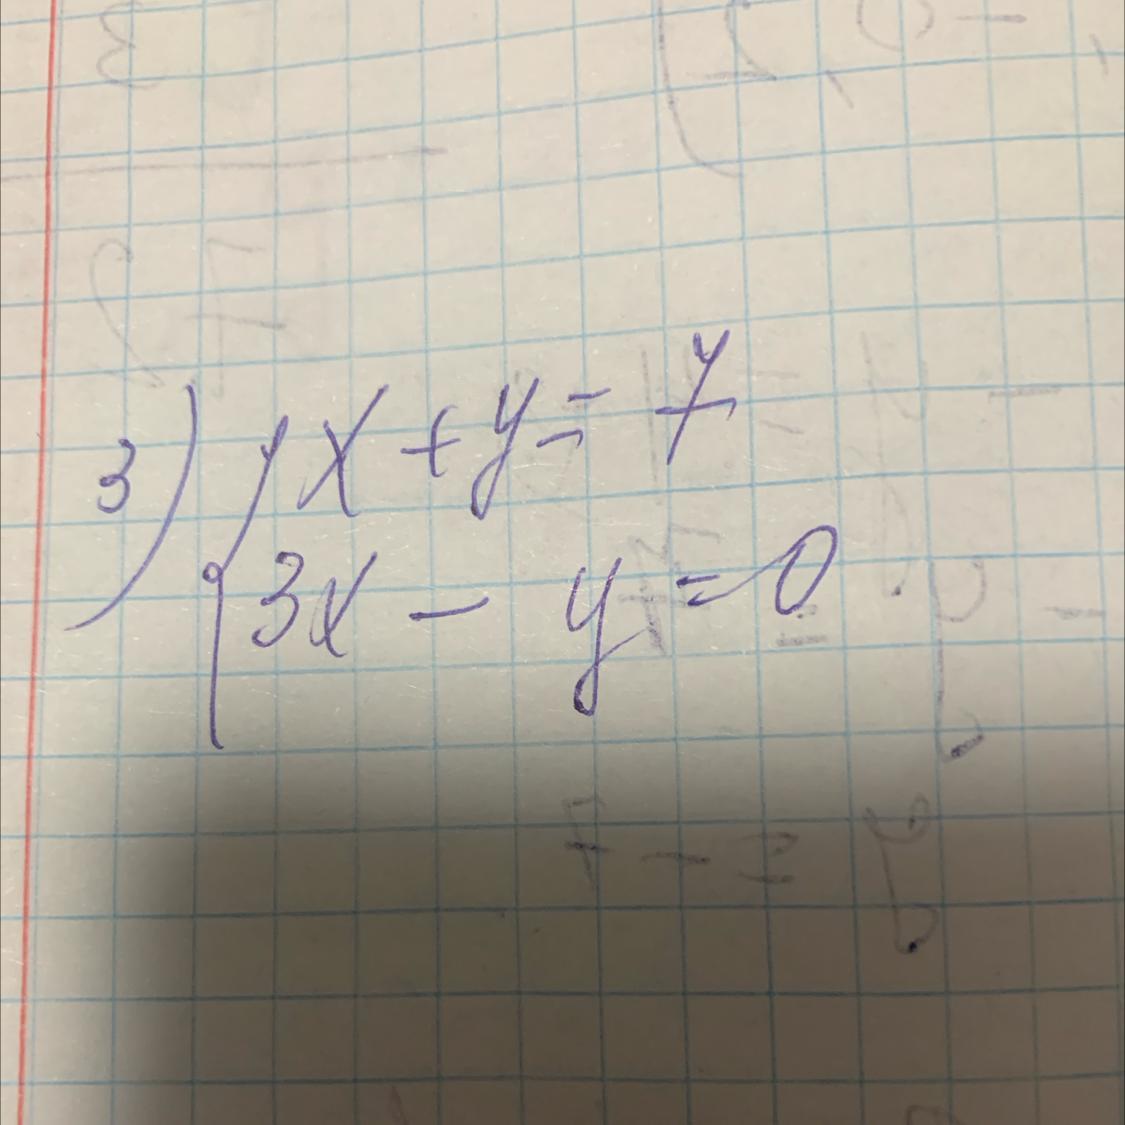 3) { x + y = 7
3x - y = 0